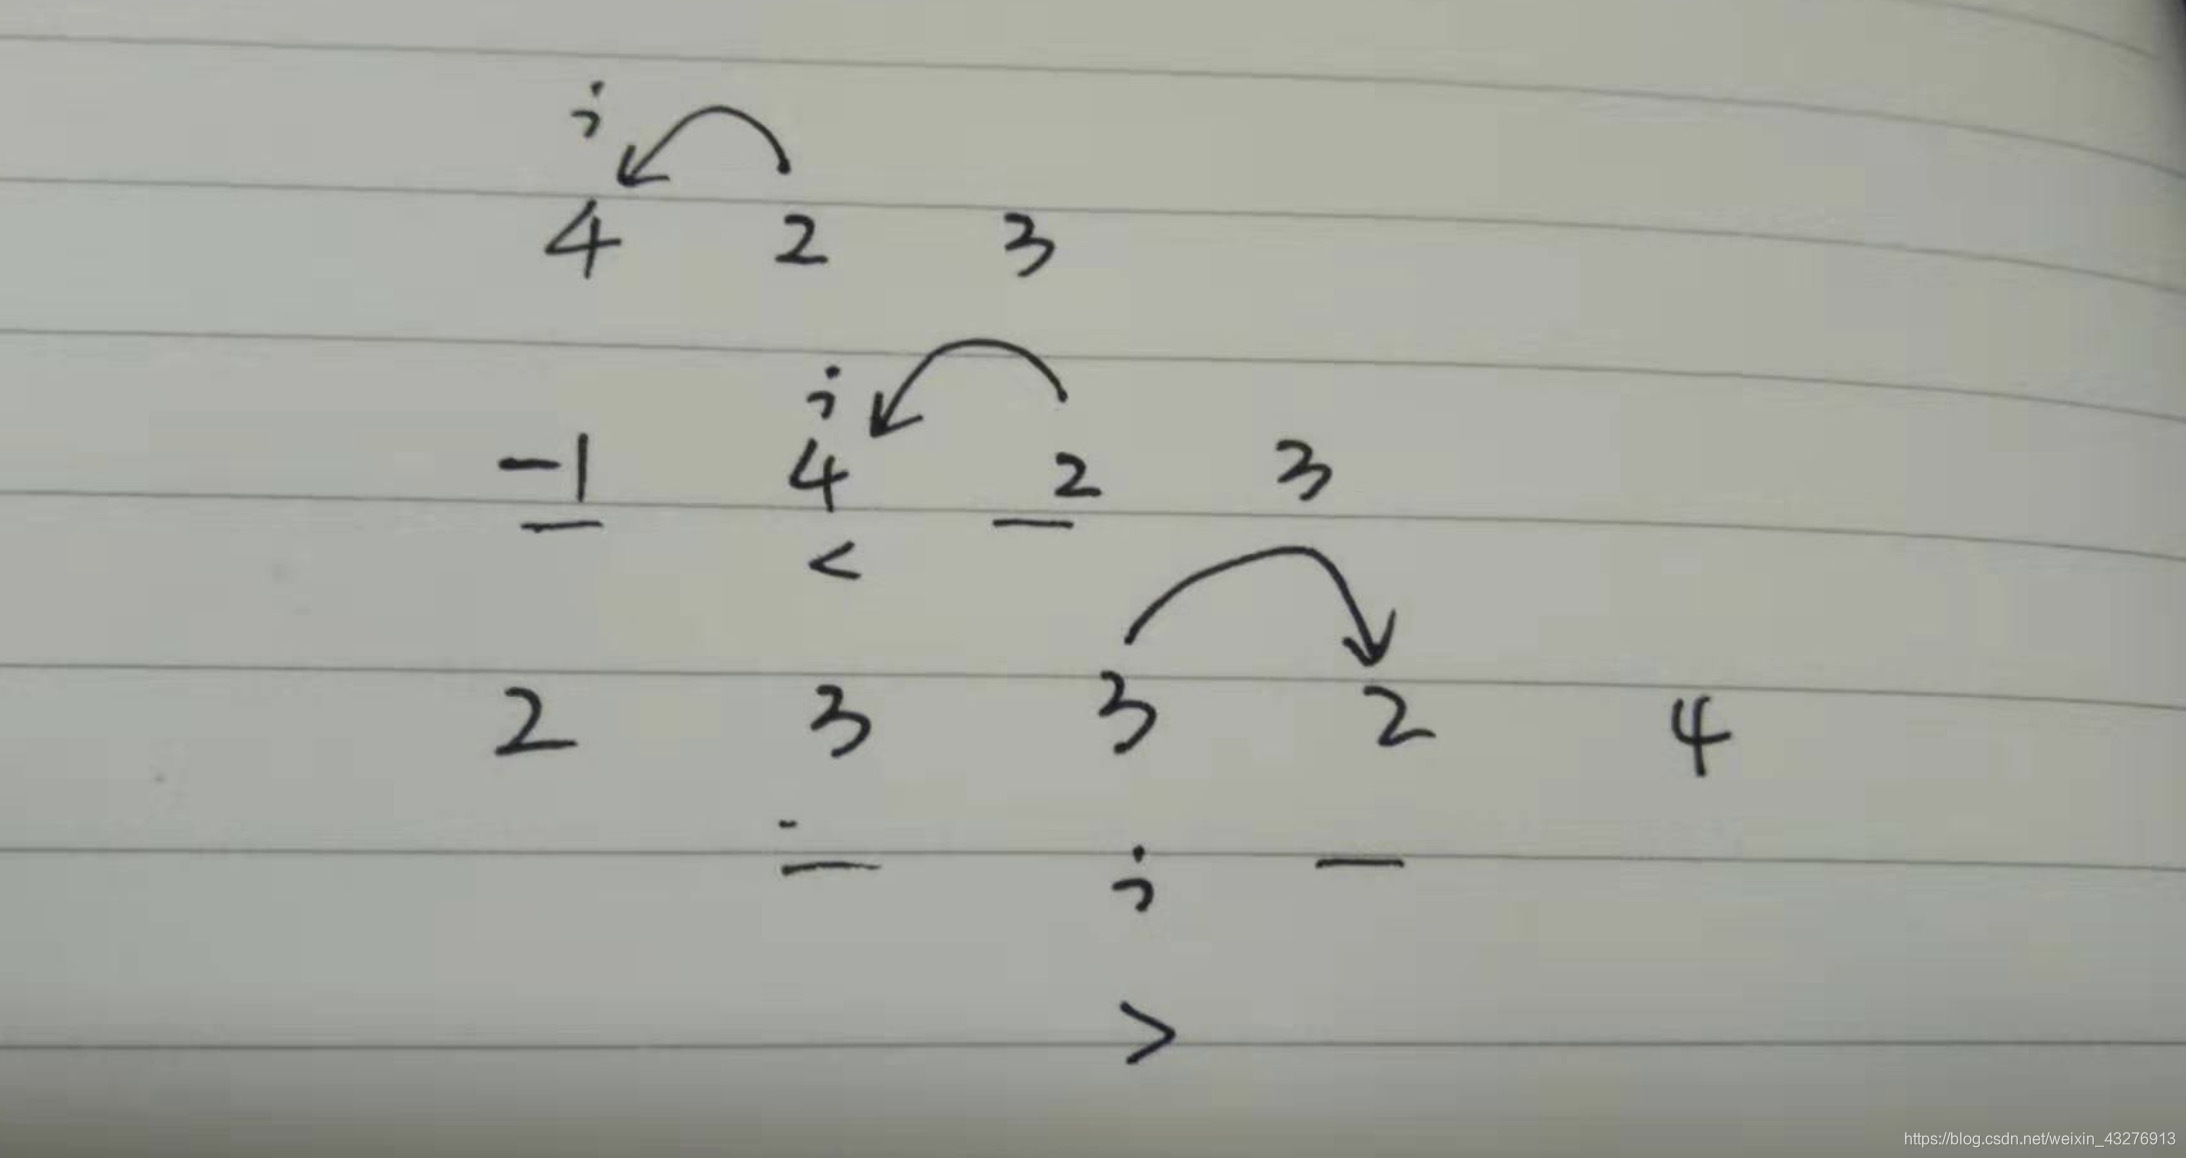 i
4 2 3
i
-1 4 2 3
<
2 3 3 2 4
i
>
https://blog.csdn.net/weixin_43276913